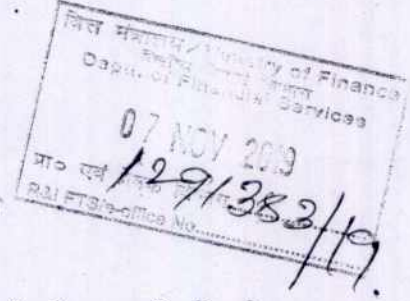 वित्त मंत्रालय / Ministry of Finance
Deptt. of Financial Services
07 NOV 2019
प्रा० एवं
1291383/19.
R&I FTS/e-office No.